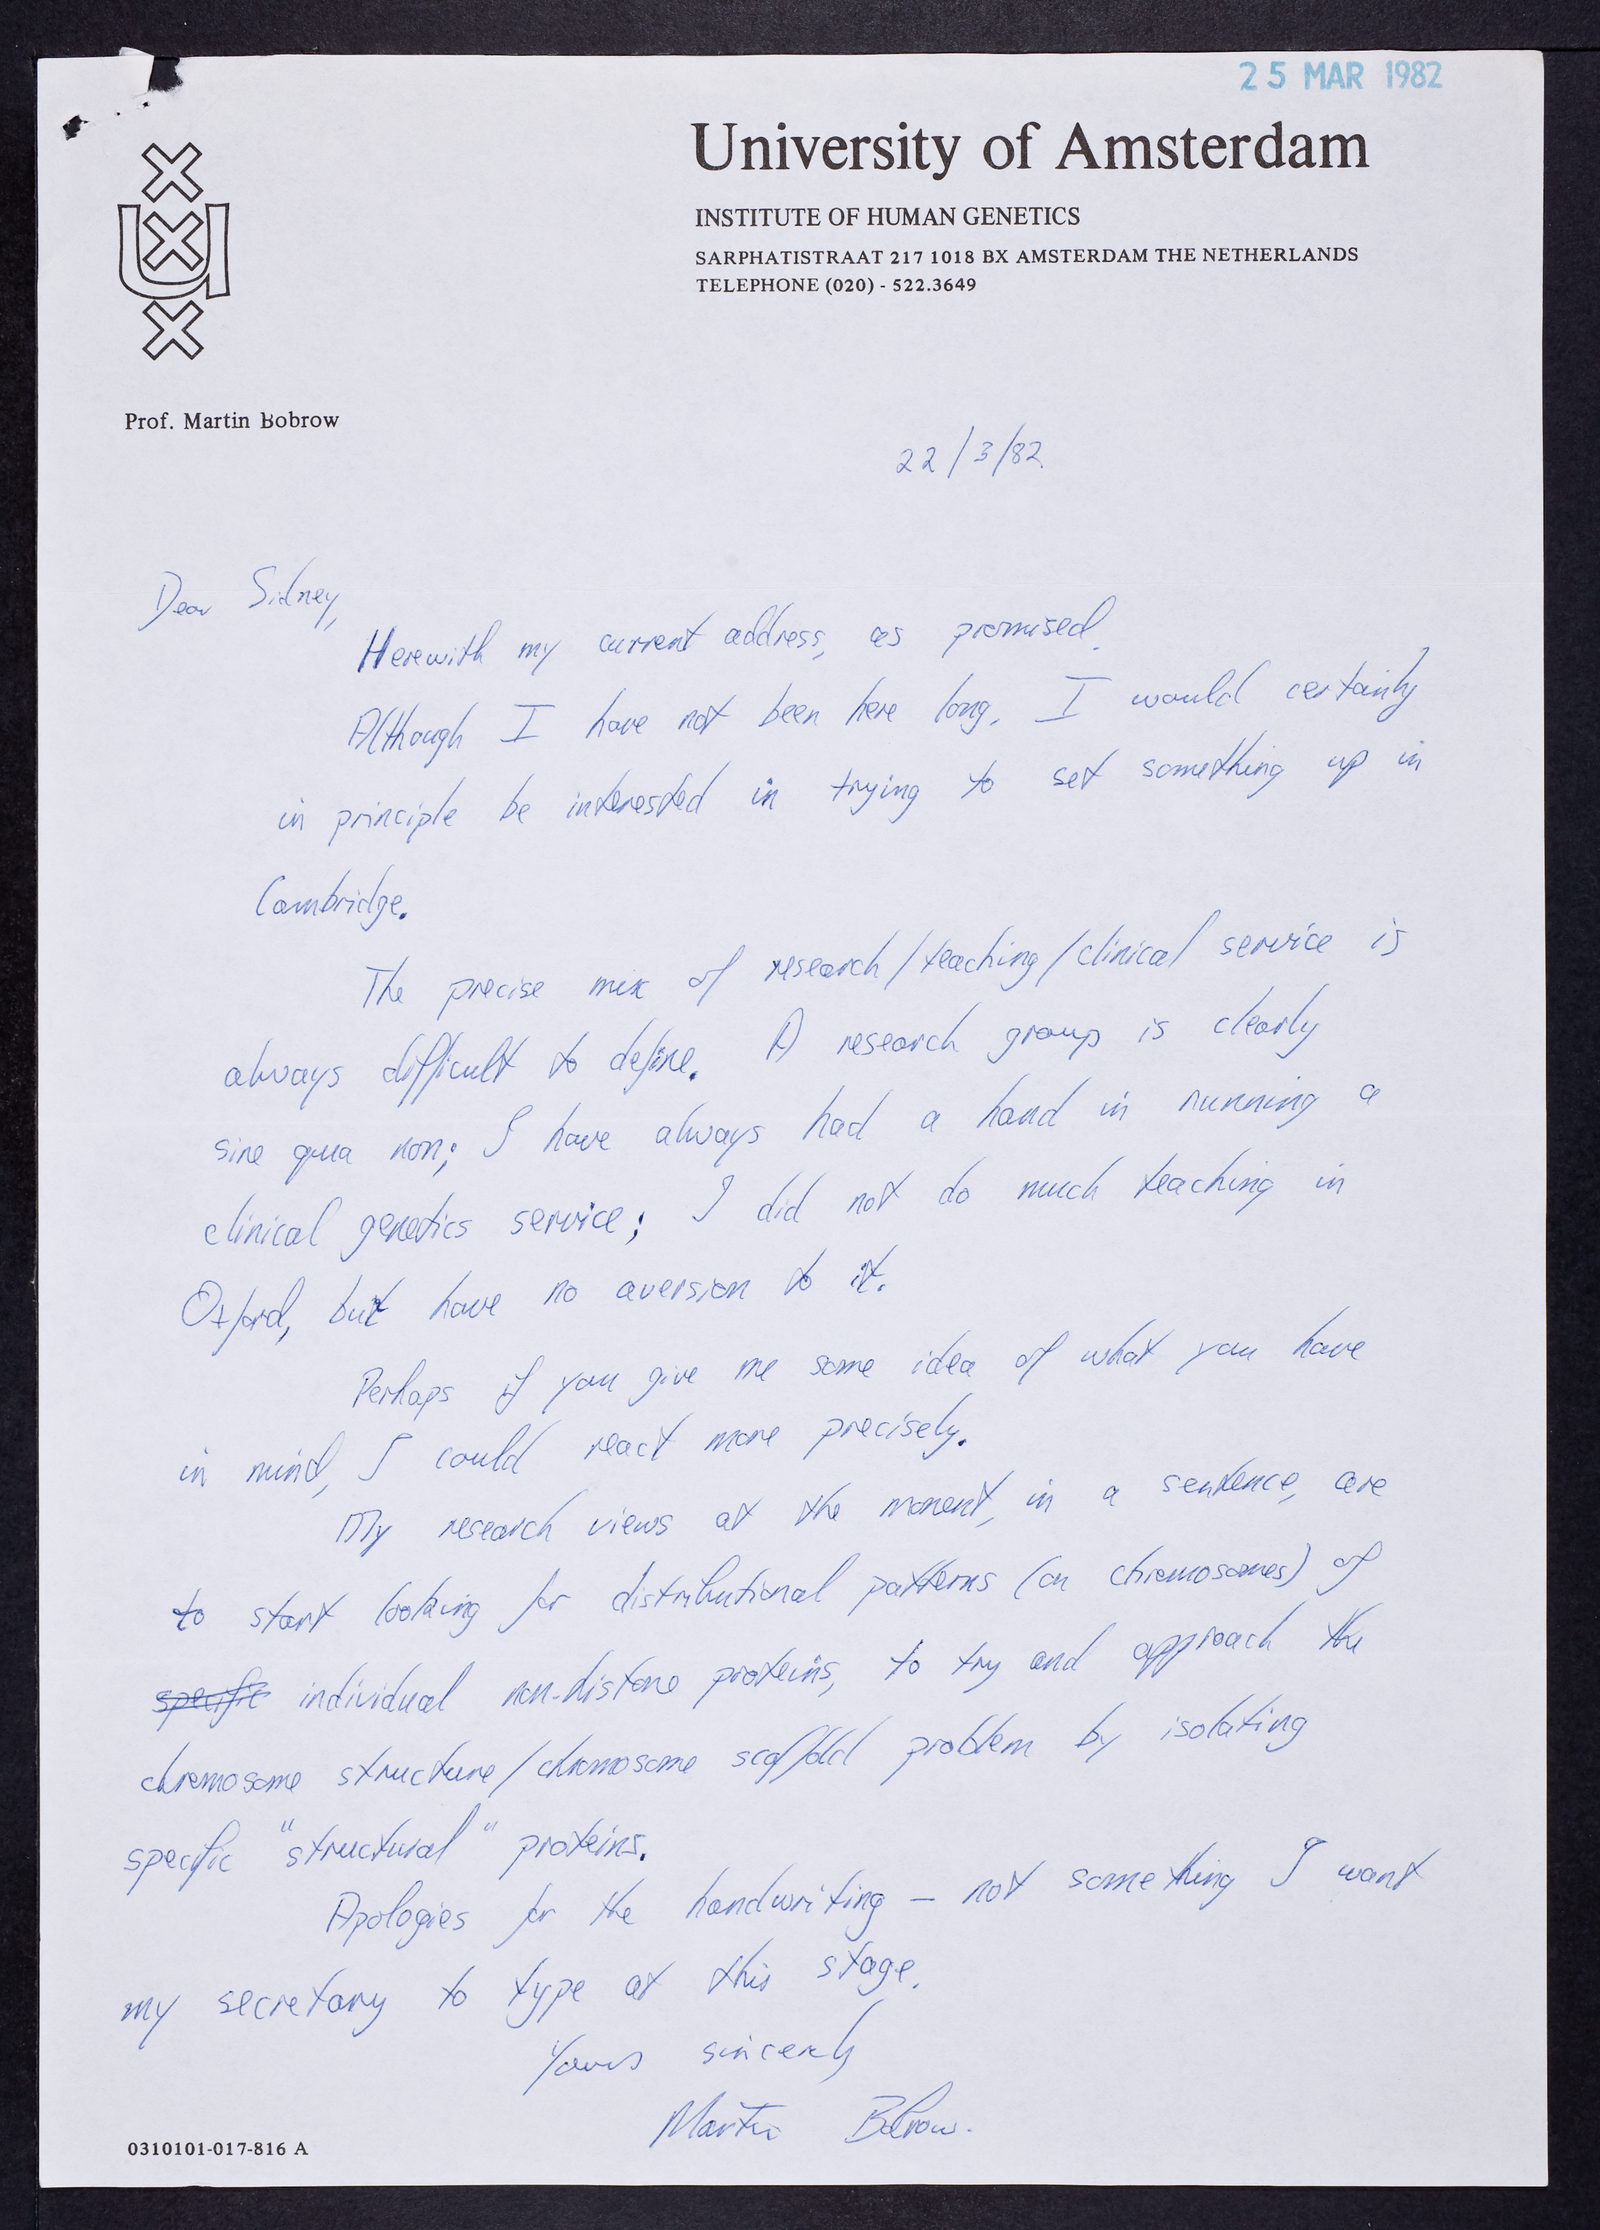 25 MAR 1982
University of Amsterdam
INSTITUTE OF HUMAN GENETICS
SARPHATISTRAAT 217 1018 BX AMSTERDAM THE NETHERLANDS
TELEPHONE (020) - 522.3649
Prof. Martin Bobrow
22/3/82
Dear Sidney,
Herewith my current address, as promised.
Although I have not been here long, I would certainly
in principle be interested in trying to set something up in
Cambridge.
The precise mix of research/teaching/clinical service is
always difficult to define. A research group is clearly
sine qua non; I have always had a hand in running a
clinical genetics service; I did not do much teaching in
Oxford, but have no aversion to it.
Perhaps if you give me some idea of what you have
in mind, I could react more precisely.
My research views at the moment, in a sentence, are
to start looking for distributional patterns (on chromosomes) of
specific individual non-histone proteins, to try and approach the
chromosome structure/chromosome scaffold problem by isolating
specific "structural" proteins.
Apologies for the handwriting – not something I want
my secretary to type at this stage.
Yours sincerely
Martin Bobrow.
0310101-017-816 A